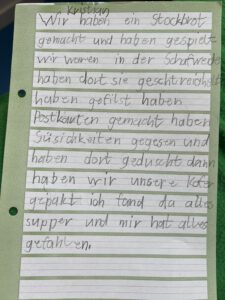 Kristian
Wir haben ein Stockbrot
gemacht und haben gespielt
wir waren in der Schafwede
haben dort sie geschtreichelt
haben gefilst haben
Postkarten gemacht haben
Süsichkeiten gegesen und
haben dort geduscht dann
haben wir unsere Kofer
gepakt ich fand da alles
supper und mir hat alles
gefahlen.